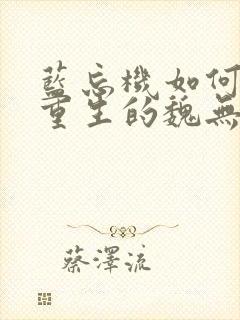 藍忘機如何
重生的魏無
蔡澤流